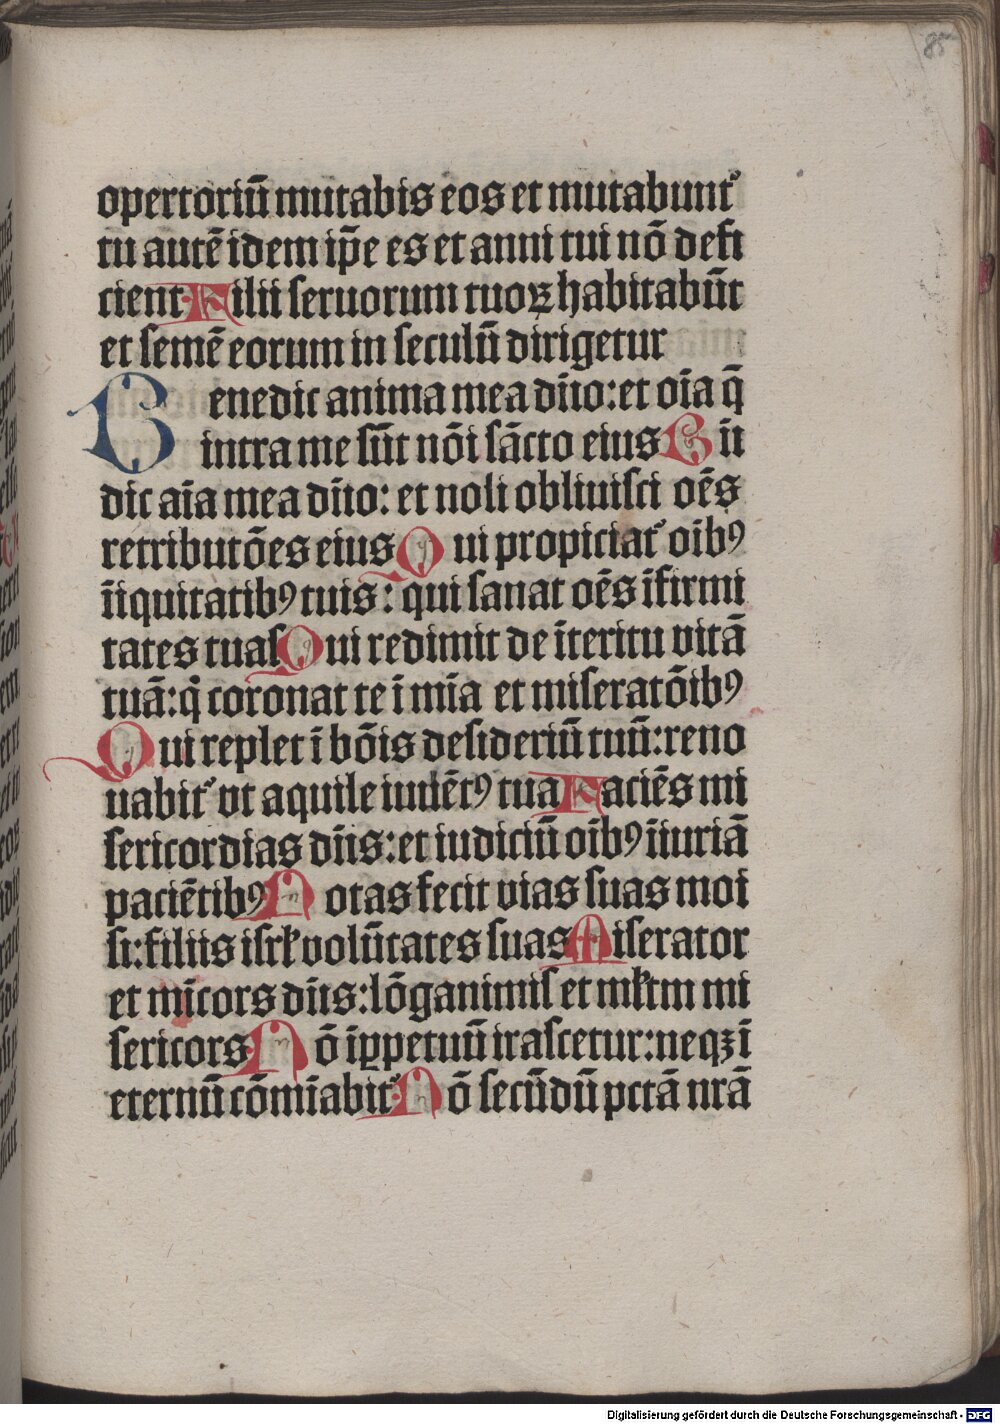 85
opertoriū mutabis eos et mutabunt᷒
tu autē idem ip̄e es et anni tui nō defi
cient Filii seruorum tuoꝝ habitabūt
et semē eorum in seculū dirigetur
Benedic anima mea dn̄o: et oīa q̄
intra me sūt nōi sācto eius Bn̄
dic aīa mea dn̄o: et noli obliuisci oēs
retributōes eius Qui propiciat᷒ oībꝰ
īiquitatibꝰ tuis: qui sanat oēs īfirmi
tates tuas Qui redimit de īteritu vitā
tuā: q̇ coronat te ī mīa et miseratōibꝰ
Qui replet ī bōis desideriū tuū: reno
uabit᷒ vt aquile iuuētꝰ tua Faciēs mi
sericordias dn̄s: et iudiciū oībꝰ īiuriā
paciētibꝰ Notas fecit vias suas moi
si: filiis isrł volūtates suas Miserator
et mīcors dn̄s: lōganimis et młtm mi
sericors Nō īꝑpetuū irascetur: neqꝫ ī
eternū cōmīabit᷒ Nō secūdū pctā nrā
Digitalisierung gefördert durch die Deutsche Forschungsgemeinschaft - DFG